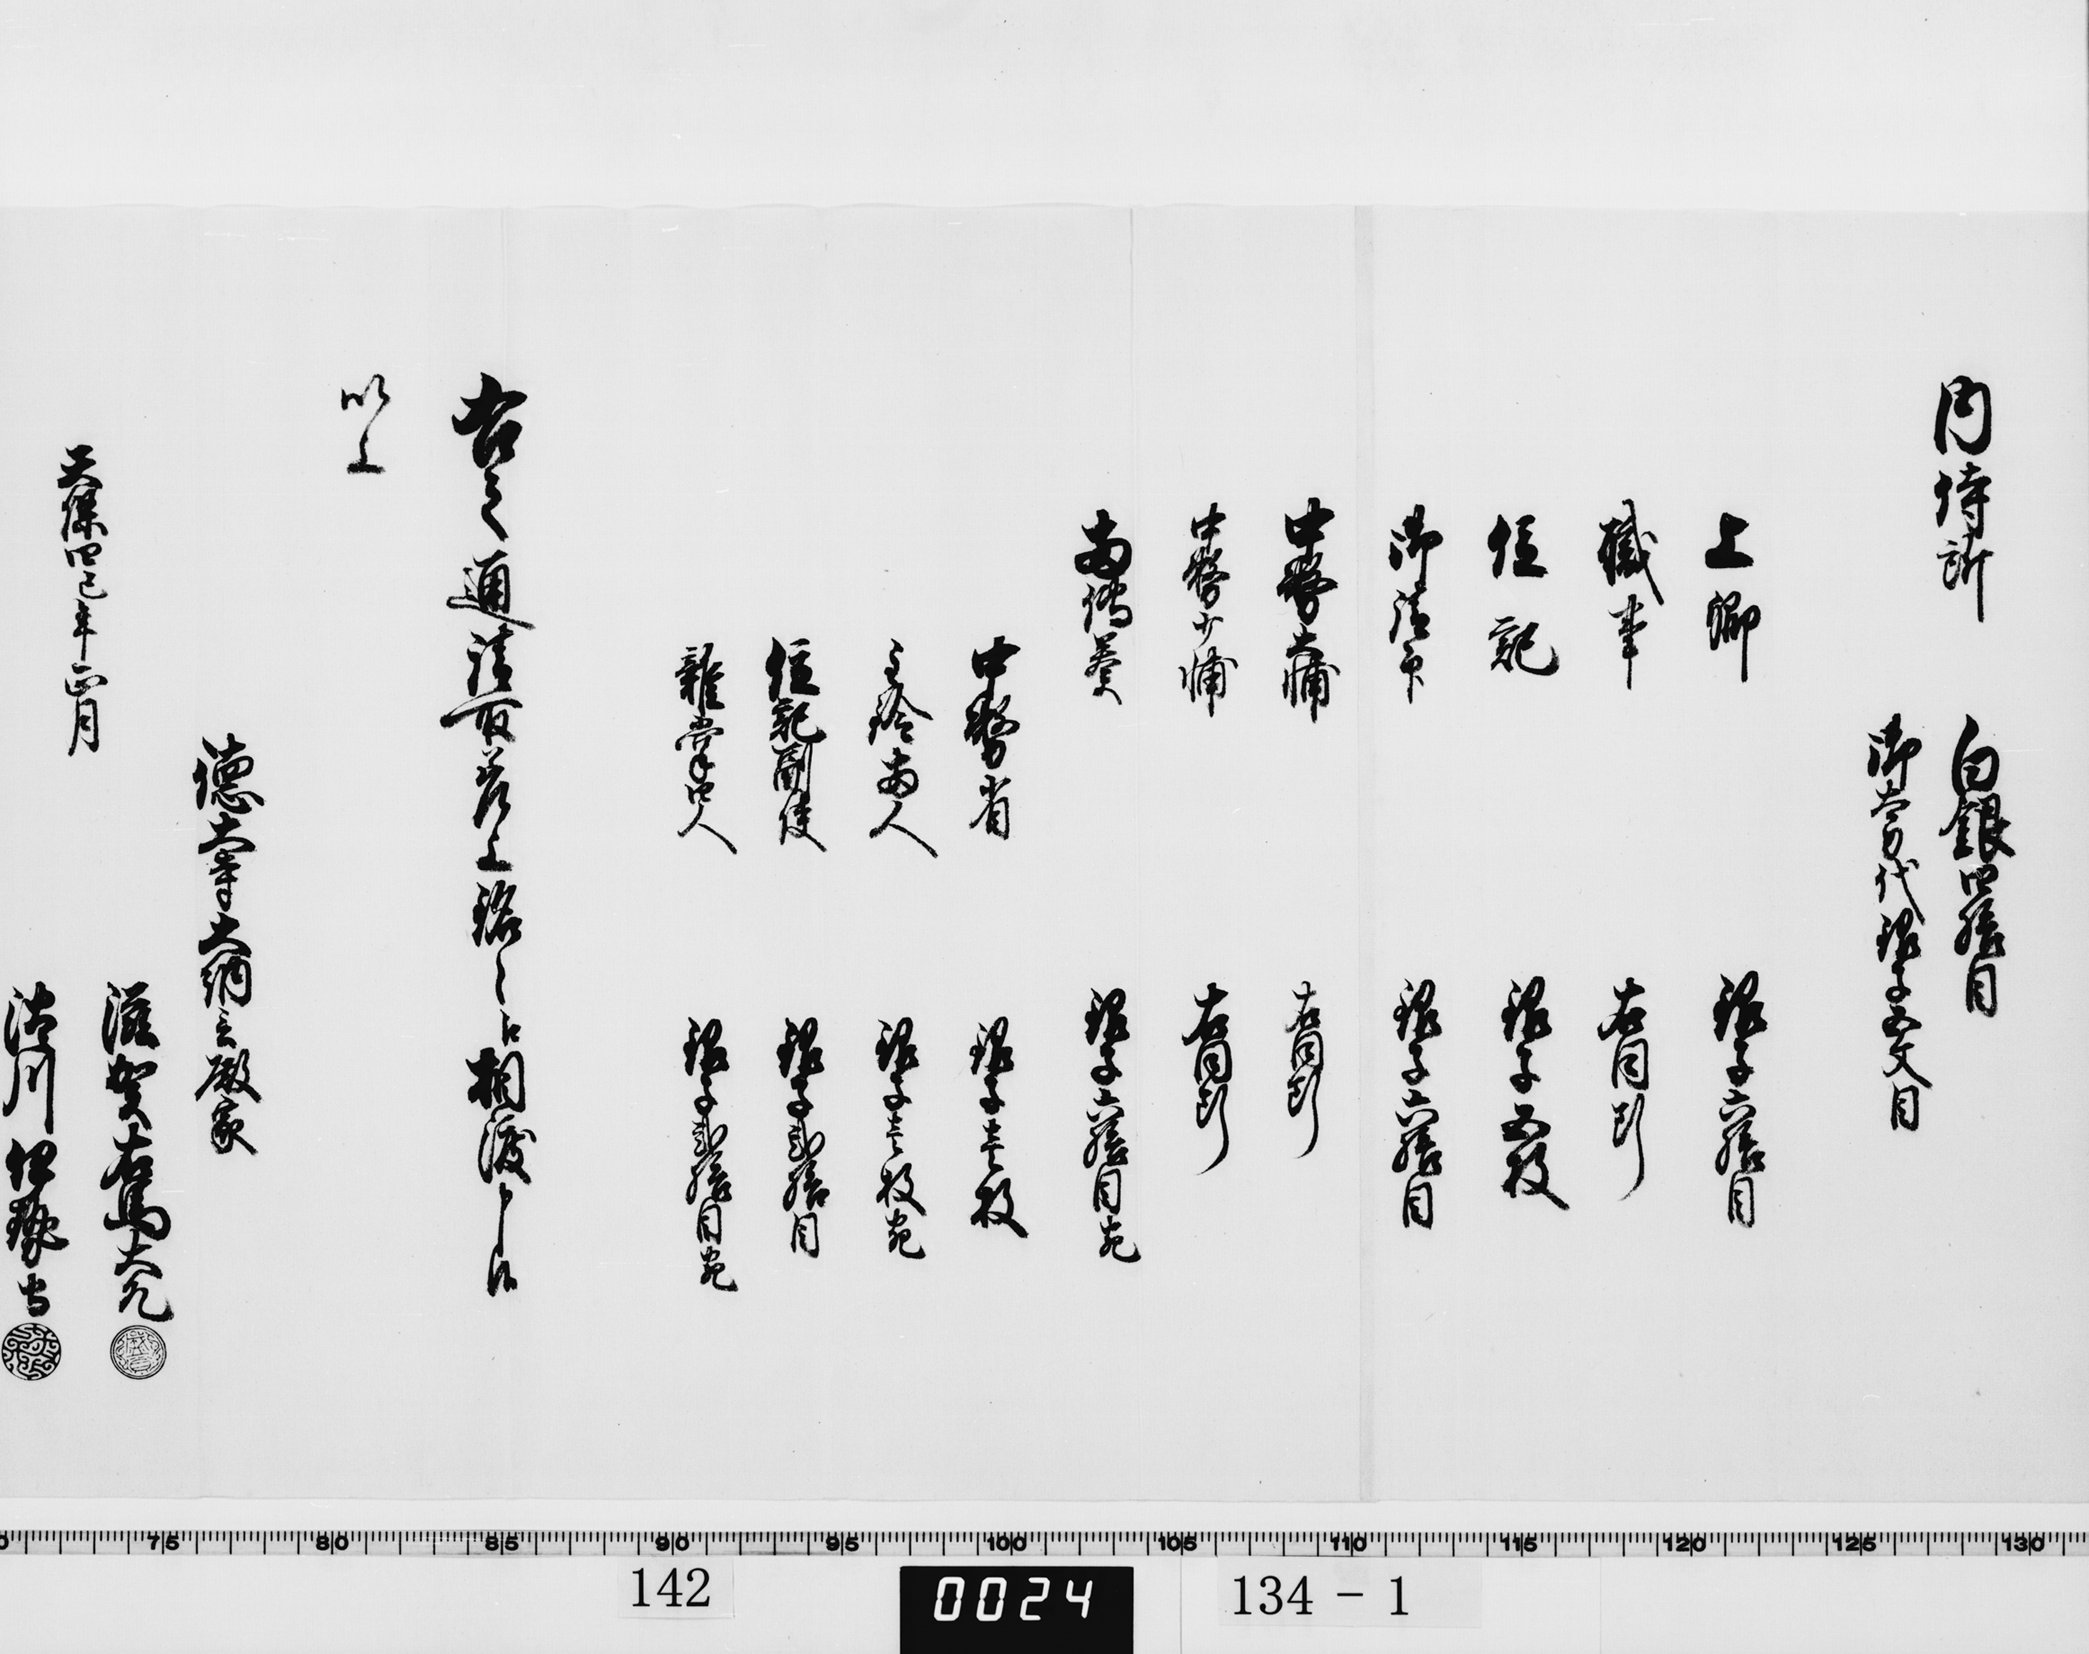 内侍所
白銀四拾目
御太刀代銀子五文目
上卿 銀子六拾目
職事 右同断
位記 銀子五枚
御請印 銀子六拾目
中務大輔 右同断
中務少輔 右同断
両伝奏 銀子六拾目宛
中務省 銀子壱枚
主鈴両人 銀子壱枚宛
位記副使 銀子弐拾目
雑掌四人 銀子弐拾目宛
右之通請取差上銘々江相渡申候
以上
天保四巳年正月
徳大寺大納言殿家
滋賀右馬大允
沽川伊勢守
75 80 85 90 95 100 105 110 115 120 125 130
142
0024
134-1